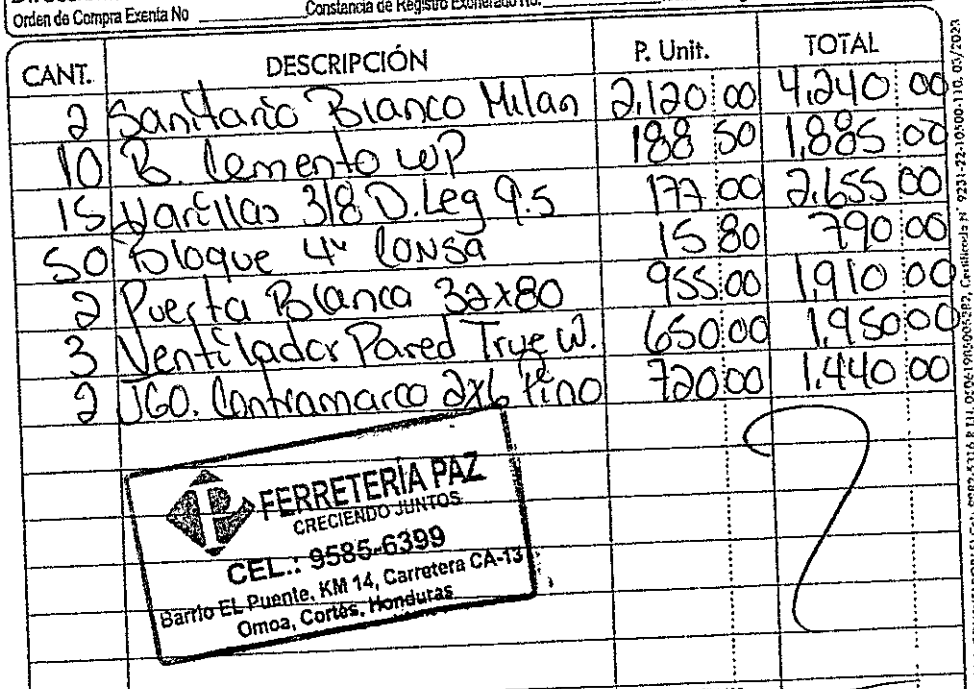 Orden de Compra Exenta No Constancia de Registro Exonerado No.
CANT. DESCRIPCIÓN P. Unit. TOTAL
2 Sanitario Blanco Milan 2,120 00 4,240 00
10 B. Cemento WP 188 50 1,885 00
15 Varillas 3/8 D. Leg 9.5 177 00 2,655 00
50 Bloque 4" Consa 15 80 790 00
2 Puerta Blanca 32x80 955 00 1,910 00
3 Ventilador Pared True W. 650 00 1,950 00
2 JGO. Contramarco 2x6 Pino 720 00 1,440 00
FERRETERÍA PAZ
CRECIENDO JUNTOS
CEL.: 9585-6399
Barrio EL Puente, KM 14, Carretera CA-13
Omoa, Cortés, Honduras